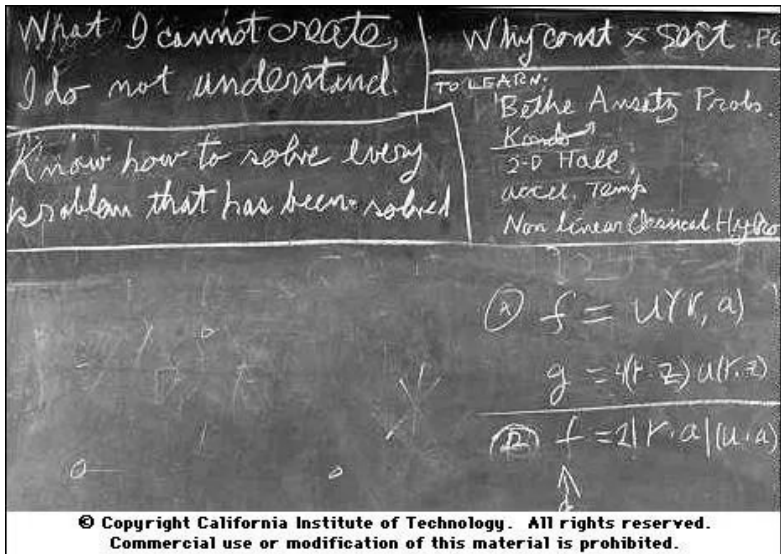 What I cannot create,
I do not understand.
Know how to solve every
problem that has been solved
Why const × sort .PO
TO LEARN:
Bethe Ansatz Probs.
Kondo
2-D Hall
accel. Temp
Non Linear Classical Hydro
Ⓐ f = u(r, a)
g = 4(r·z) u(r·z)
f = 2|r·a|(u·a)
© Copyright California Institute of Technology. All rights reserved.
Commercial use or modification of this material is prohibited.